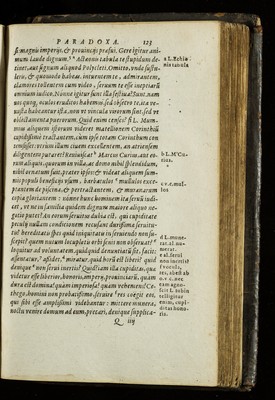 PARADOXA. 123
si magnis imperijs, & prouincijs præsui. Gere igitur ani-
mum laude dignum. Aetionis tabula te stupidum de-
tinet, aut signum aliquod Polycleti. Omitto, unde sustu-
leris, & quomodo habeas. intuentem te, admirantem,
clamores tollentem cum video, seruum te esse ineptiarū
omnium iudico. Nonne igitur sunt illa festiua? Sunt. nam
nos quoq; oculos eruditos habemus. sed obsecro te, ita ue-
nusta habeantur ista, non ut uincula uirorum sint, sed ut
oblectamenta puerorum. Quid enim censes? si L. Mum-
mius aliquem istorum uideret matellionem Corinthiū
cupidissime tractantem, cum ipse totam Corinthum con-
tempsisset: utrum illum ciuem excellentem, an atriensem
diligentem putaret? Reuiuiscat Marcus Curius, aut eo-
rum aliquis, quorum in uilla, ac domo nihil splendidum,
nihil ornatum fuit, præter ipsos: & uideat aliquem sum-
mis populi beneficijs usum, barbatulos mullos exce-
ptantem de piscina, & pertractantem, & murænarum
copia gloriantem: nonne hunc hominem ita seruū iudi-
cet, ut ne in familia quidem dignum maiore aliquo ne-
gotio putet? An eorum seruitus dubia est, qui cupiditate
peculij nullam conditionem recusant durissimæ seruitu-
tis? hereditatis spes quid iniquitatis in seruiendo non su-
scipit? quem nutum locupletis orbi senis non obseruat?
loquitur ad uoluntatem. quidquid denuntiatū sit, facit:
assectatur, assidet, miratur. quid horū est liberi? quid
denique non serui inertis? Quid? iam illa cupiditas, quæ
uidetur esse liberior, honoris, imperij, prouinciarū. quàm
dura est domina? quàm imperiosa? quàm uehemens? Ce-
thego, homini non probatissimo, seruire coegit eos,
qui sibi esse amplissimi uidebantur: mittere munera,
noctu uenire domum ad eum, precari, denique supplica-
Q iij
a L. Echio
nis tabula
b L. M' Cu-
rius.
d L. mune-
ratur.